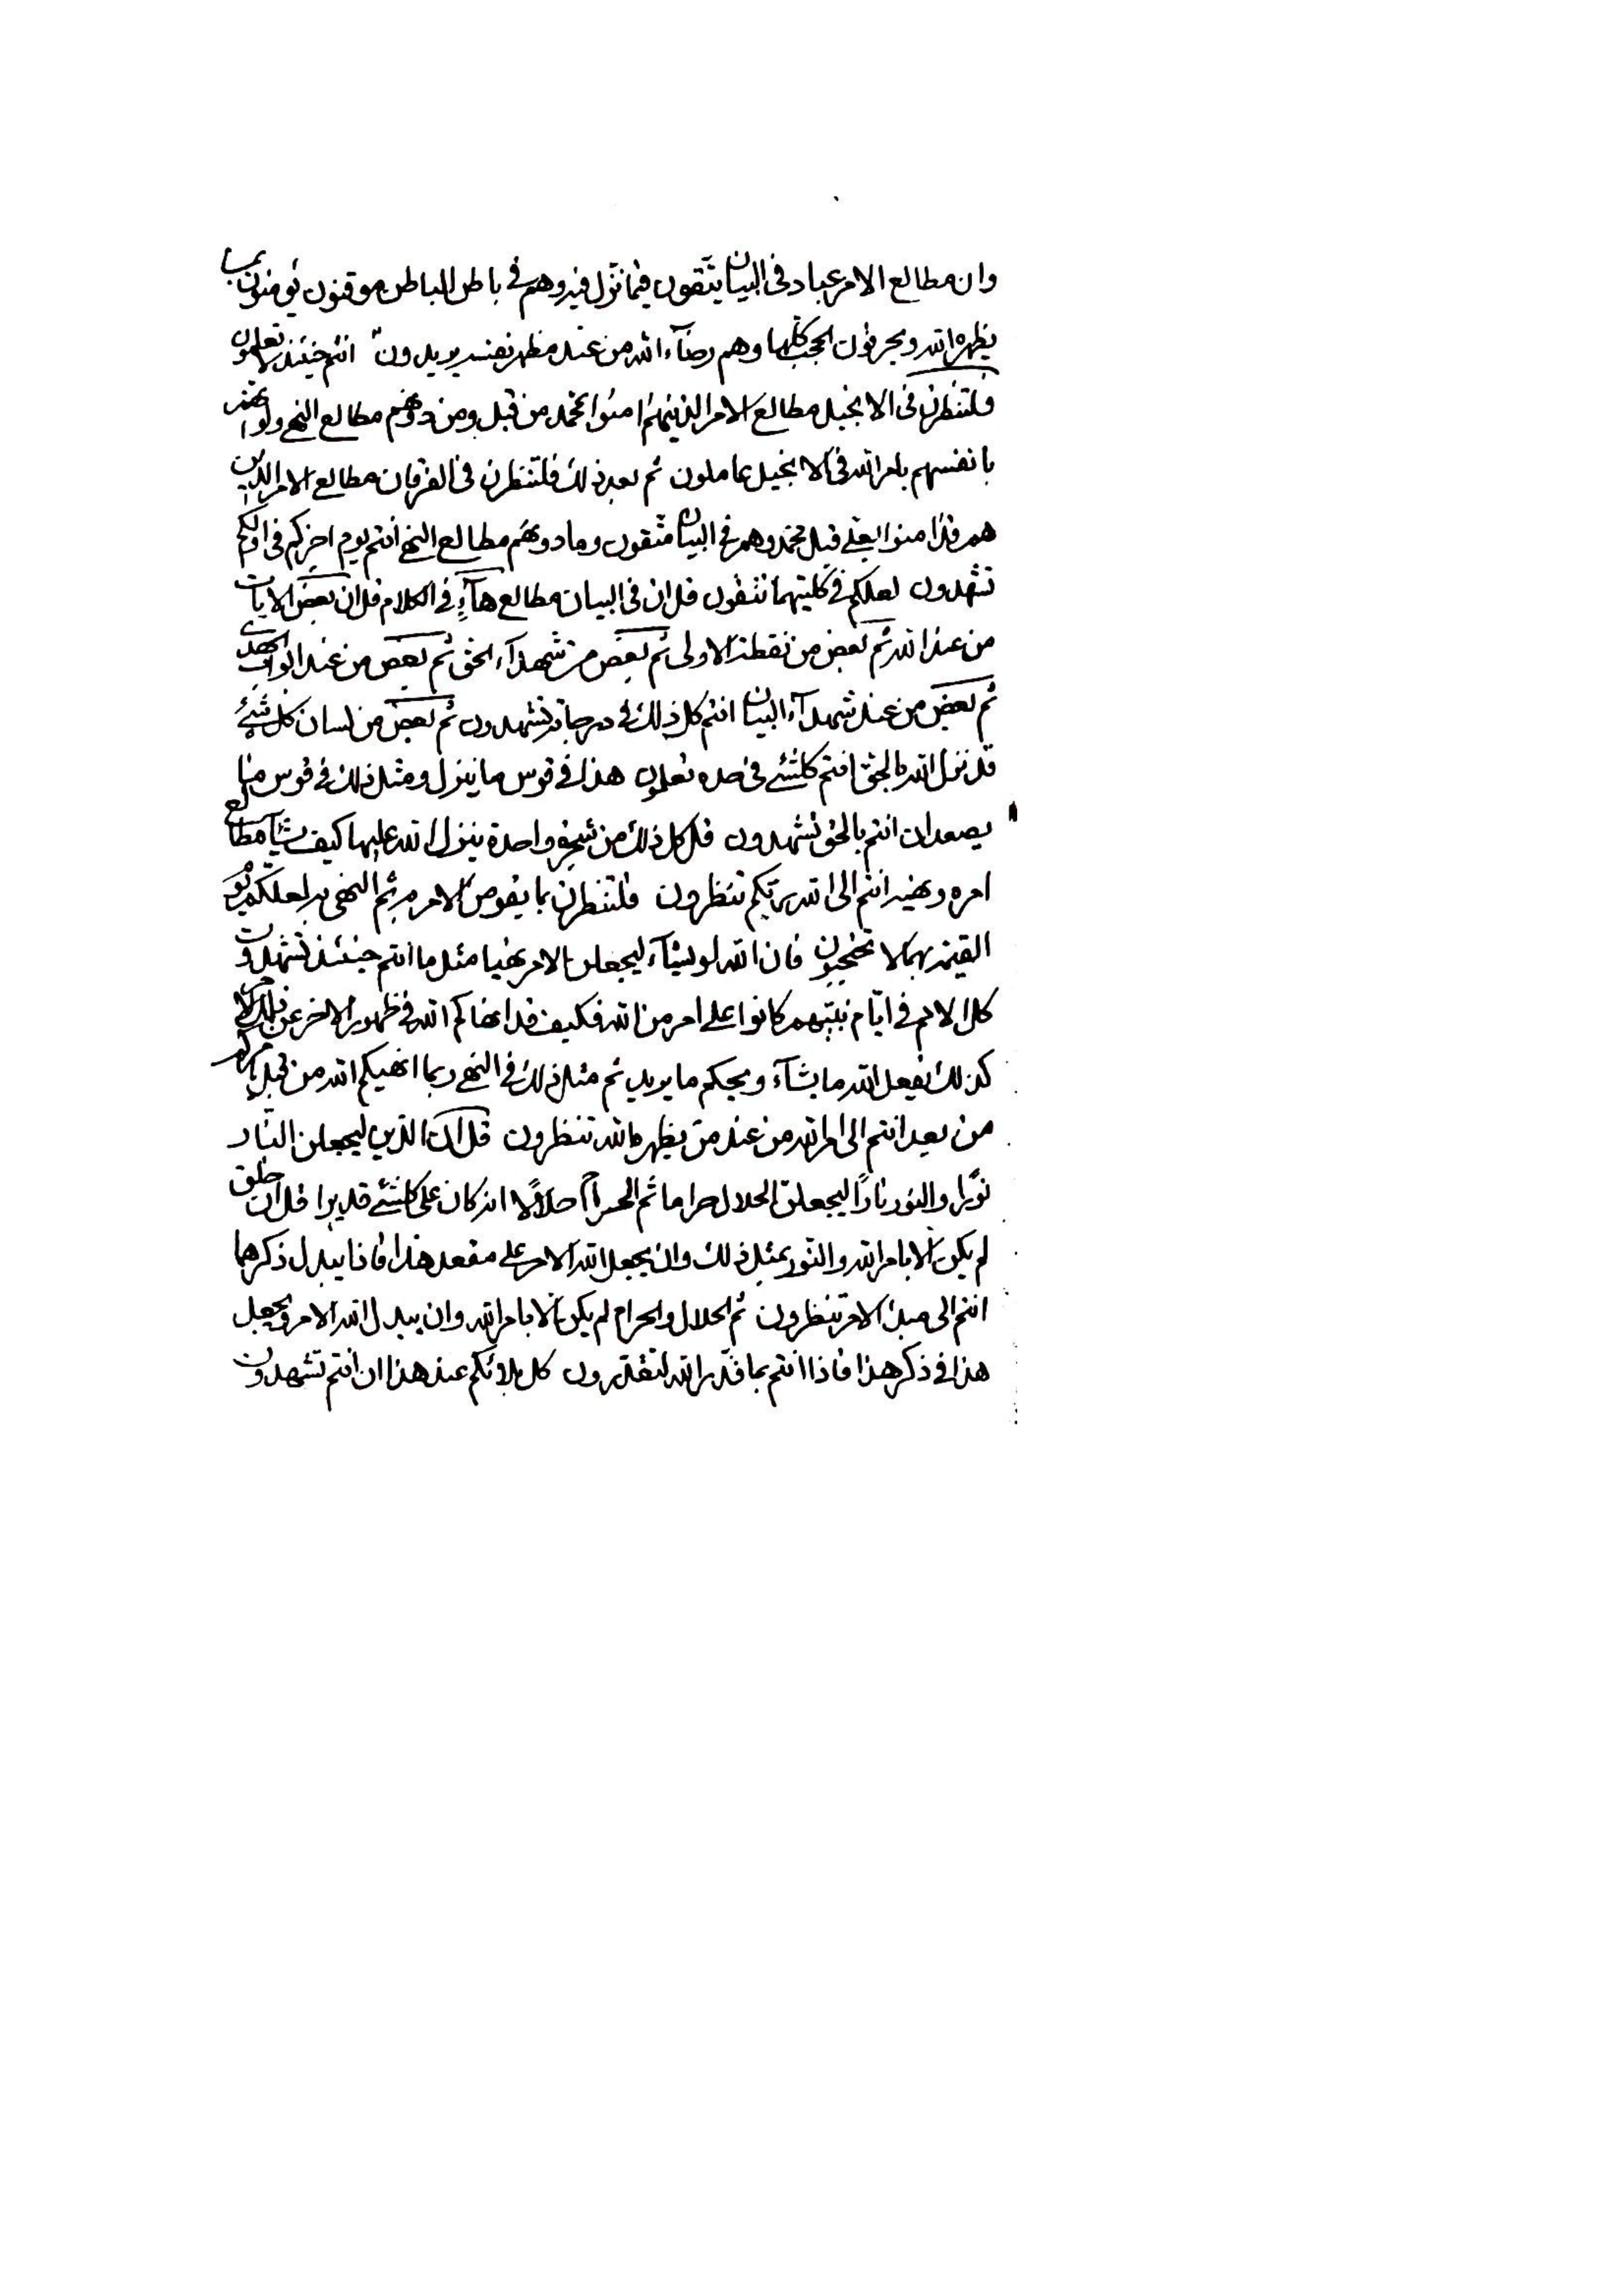 وان مطالع الامر عباد فى البيان يتّقون فيما نزّل فيه وهم فى باطن الباطن موقنون يؤمنون بمن
يظهره الله ويحرقون الحجب كلّها وهم رضآء الله من عند مظهر نفسه يريدون انتم حينئذ لا تعلمون
فلتنظرن فى الانجيل مطالع الامر الذينهم امنوا بمحمد من قبل ومن دونهم مطالع النهى ولو انهم
بانفسهم بامر الله فى الانجيل عاملون ثم بعد ذلك فلتنظرن فى الفرقان مطالع الامر الذين
هم قد امنوا بعلى قبل محمد وهم فى البيان متقون وما دونهم مطالع النهى انتم يوم اخركم فى اولكم
تشهدون لعلكم فى كلتيهما تتقون قل ان فى البيان مطالع هآء فى الكلام قل ان بعض الايات
من عند الله ثم بعض من نقطة الاولى ثم بعض من شهدآء الحق ثم بعض من عند ابواب الهدى
ثم بعض من عند شهدآء البيان انتم كل ذلك فى درجاته تشهدون ثم بعض من لسان كل شئ
قد نزل الله بالحق انتم كلشئ فى حده تعلمون هذا فى قوس ما ينزل ومثل ذلك فى قوس ما
يصعد ان انتم بالحق تشهدون قل كل ذلك من شجرة واحدة ينزل الله عليها كيف يشآء مطالع
امره ونهيه انتم الى الله ربكم تنظرون فلتنظرن بما يقوم الامر به ثم النهى به لعلكم يوم
القيمة بهما لا تحتجبون فان الله لو يشآء ليجعلن الامر نهيا مثل ما انتم حينئذ تشهدون
كل الامم فى ايّام نبيّهم كانوا على امر من الله فكيف قد انهاكم الله فى ظهور الاخر عن ذلك الامر
كذلك يفعل الله ما يشآء ويحكم ما يريد ثم مثل ذلك فى النهى ربما انهيكم الله من قبل يامركم
من بعد انتم الى امر الله من عند من يظهره الله تنظرون قل ان الذى ليجعلن النار
نورًا والنور نارًا ليجعلن الحلال حراما ثم الحرام حلالًا انه كان على كلشئ قديرا قل ان خلق
لم يكن الا بامر الله والنور بمثل ذلك وان يجعل الله الامر على مقعد هذا فاذا يبدل ذكرهما
انتم الى مبدء الامر تنظرون ثم الحلال والحرام لم يكن الا بامر الله وان يبدل الله الامر ويجعل
هذا فى ذكر هذا فاذا انتم بما قدّر الله لتقدّرون كل بلائكم عند هذا ان انتم تشهدون